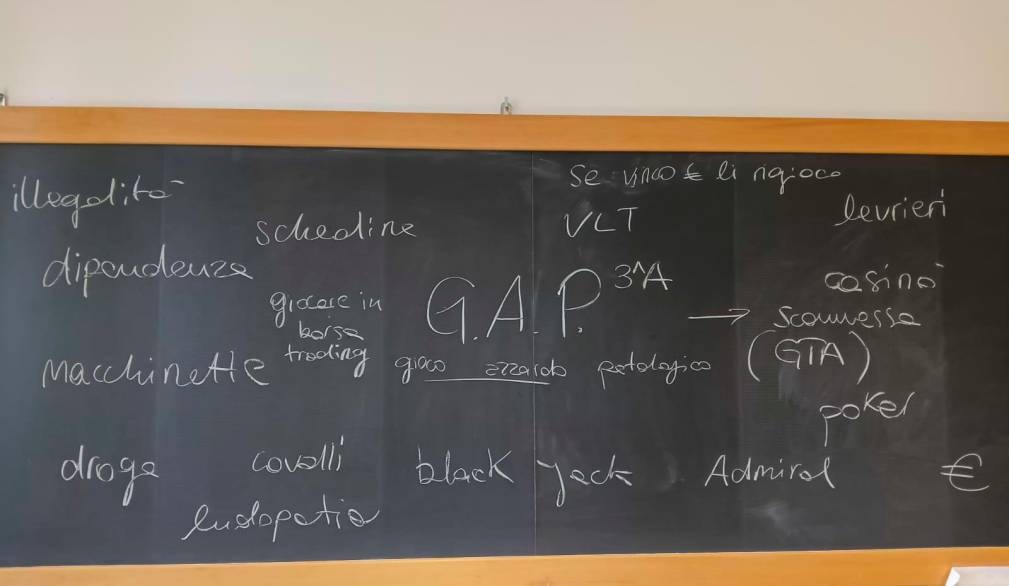 se vinco € li rigioco
illegalità
levrieri
schedine
VLT
dipendenza
3^A
casinò
giocare in
borsa
trading
G.A.P.
→ scommessa
(GTA)
macchinette
gioco azzardo patologico
poker
droga
cavalli
black jack
Admiral
€
ludopatia